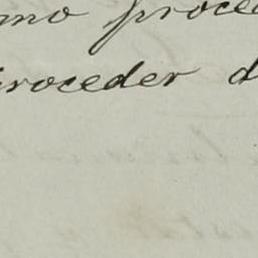 mo proce
roceder d